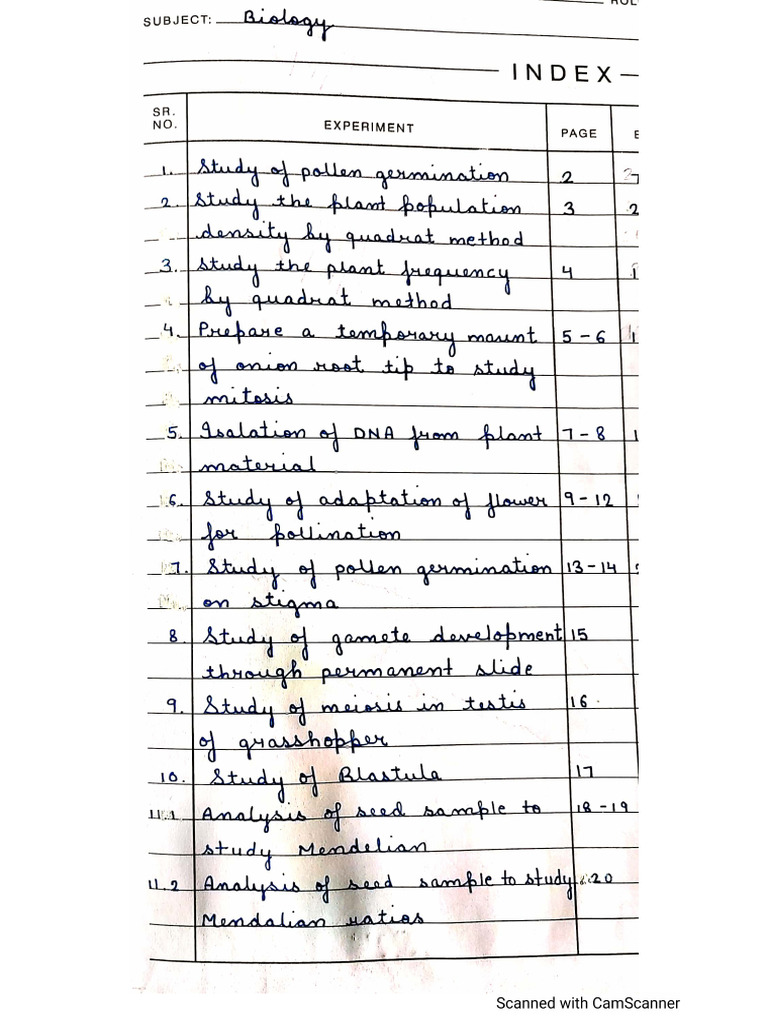 SUBJECT: Biology
INDEX
SR. NO. EXPERIMENT PAGE
1. Study of pollen germination 2
2. Study the plant population 3
density by quadrat method
3. Study the plant frequency 4
by quadrat method
4. Prepare a temporary mount 5-6
of onion root tip to study
mitosis
5. Isolation of DNA from plant 7-8
material
6. Study of adaptation of flower 9-12
for pollination
7. Study of pollen germination 13-14
on stigma
8. Study of gamete development 15
through permanent slide
9. Study of meiosis in testis 16
of grasshopper
10. Study of Blastula 17
11.1 Analysis of seed sample to 18-19
study Mendelian
11.2 Analysis of seed sample to study 20
Mendalian ratios
Scanned with CamScanner